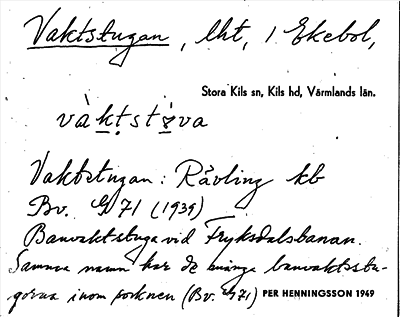 Vaktstugan, lht, 1 Ekebol,
Stora Kils sn, Kils hd, Värmlands län.
vàkt̩stɜva
Vaktstugan: Rävling kb
Bv. 71 (1939)
Banvaktstuga vid Fryksdalsbanan.
Samma namn har de många banvaktsstu-
gorna inom socknen (Bv. 71) PER HENNINGSSON 1949